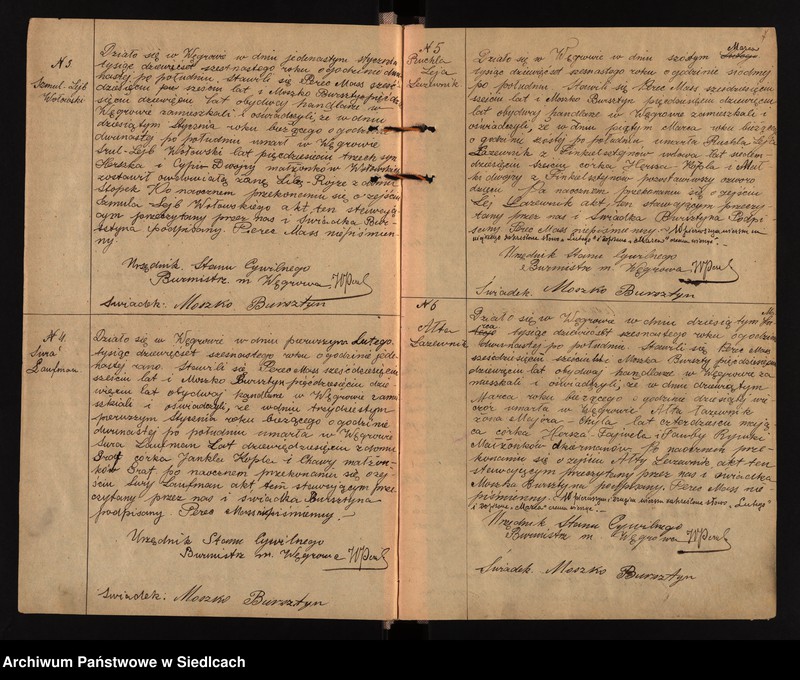 N 3
Szmul-Lejb
Wołowski
Działo się w Węgrowie w dniu jedenastym stycznia
tysiąc dziewięćset szesnastego roku o godzinie dwu-
nastej po południu. Stawili się Perec Mass sześć-
dziesięciu sześciu lat i Moszko Bursztyn pięćdzie-
sięciu dziewięciu lat obydwaj handlarze w
Węgrowie zamieszkali i oświadczyli, że w dniu
dziesiątym Stycznia roku bieżącego o godzinie
dwunastej po południu umarł w Węgrowie
Szul-Lejb Wołowski lat pięćdziesięciu trzech syn
Herszka i małżonków Wołowskich
zostawił owdowiałą żonę
Stopek Po naocznem przekonaniu się o zejściu
Szmula Lejb Wołowskiego akt ten stawają-
cym przeczytany przez nas i świadka Bur-
sztyna podpisany. Perec Mass niepiśmien-
ny.
Urzędnik Stanu Cywilnego
Burmistrz m. Węgrowa
Świadek: Moszko Bursztyn
N 4
Sura
Laufman
Działo się w Węgrowie w dniu pierwszym Lutego
tysiąc dziewięćset szesnastego roku o godzinie jede-
nastej rano. Stawili się Perec Mass sześćdziesięciu
sześciu lat i Moszko Bursztyn pięćdziesięciu dzie-
więciu lat obydwaj handlarze w Węgrowie zamie-
szkali i oświadczyli, że w dniu trzydziestym
pierwszym Stycznia roku bieżącego o godzinie
dwunastej po południu umarła w Węgrowie
Sura Laufman lat dziewięćdziesięciu z domu
córka Jankla i Chawy małżon-
ków po naocznem przekonaniu się o zej-
ściu Sury Laufman akt ten stawającym prze-
czytany przez nas i świadka Bursztyna
podpisany Perec Mass niepiśmienny.
Urzędnik Stanu Cywilnego
Burmistrz m. Węgrowa
Świadek: Moszko Bursztyn
N 5
Ruchla
Leja
Łazewnik
Działo się w Węgrowie w dniu szóstym Marca
tysiąc dziewięćset szesnastego roku o godzinie siódmej
po południu Stawili się Perec Mass sześćdziesięciu
sześciu lat i Moszko Bursztyn pięćdziesięciu dziewięciu
lat obydwaj handlarze w Węgrowie zamieszkali i
oświadczyli, że w dniu piątym Marca roku bieżącego
o godzinie szóstej po południu umarła Ruchla Leja
Łazewnik z Finkelsztejnów wdowa lat siedem-
dziesięciu sześciu córka
Finkelsztejnów pozostawiwszy czworo
dzieci Po naocznem przekonaniu się o zejściu
Lej Łazewnik akt ten stawającym przeczy-
tany przez nas i świadka Bursztyna Podpi-
sany Perec Mass niepiśmienny.
Urzędnik Stanu Cywilnego
Burmistrz m. Węgrowa
Świadek: Moszko Bursztyn
N 6
Ałta
Łazewnik
Działo się w Węgrowie w dniu dziesiątym Mar-
ca tysiąc dziewięćset szesnastego roku o godzinie
dwunastej po południu Stawili się Perec Mass
sześćdziesięciu sześciu lat i Moszko Bursztyn pięćdziesięciu
dziewięciu lat obydwaj handlarze w Węgrowie za-
mieszkali i oświadczyli, że w dniu dziewiątym
Marca roku bieżącego o godzinie dziesiątej wie-
czór umarła w Węgrowie Ałta Łazewnik
żona lat czterdzieści mają-
ca córka Hersza i
Małżonków Po naocznem prze-
konaniu się o zejściu Ałty Łazewnik akt ten
stawającym przeczytany przez nas i świadka
Moszka Bursztyna podpisany Perec Mass nie-
piśmienny.
Urzędnik Stanu Cywilnego
Burmistrz m. Węgrowa
Świadek: Moszko Bursztyn
Archiwum Państwowe w Siedlcach